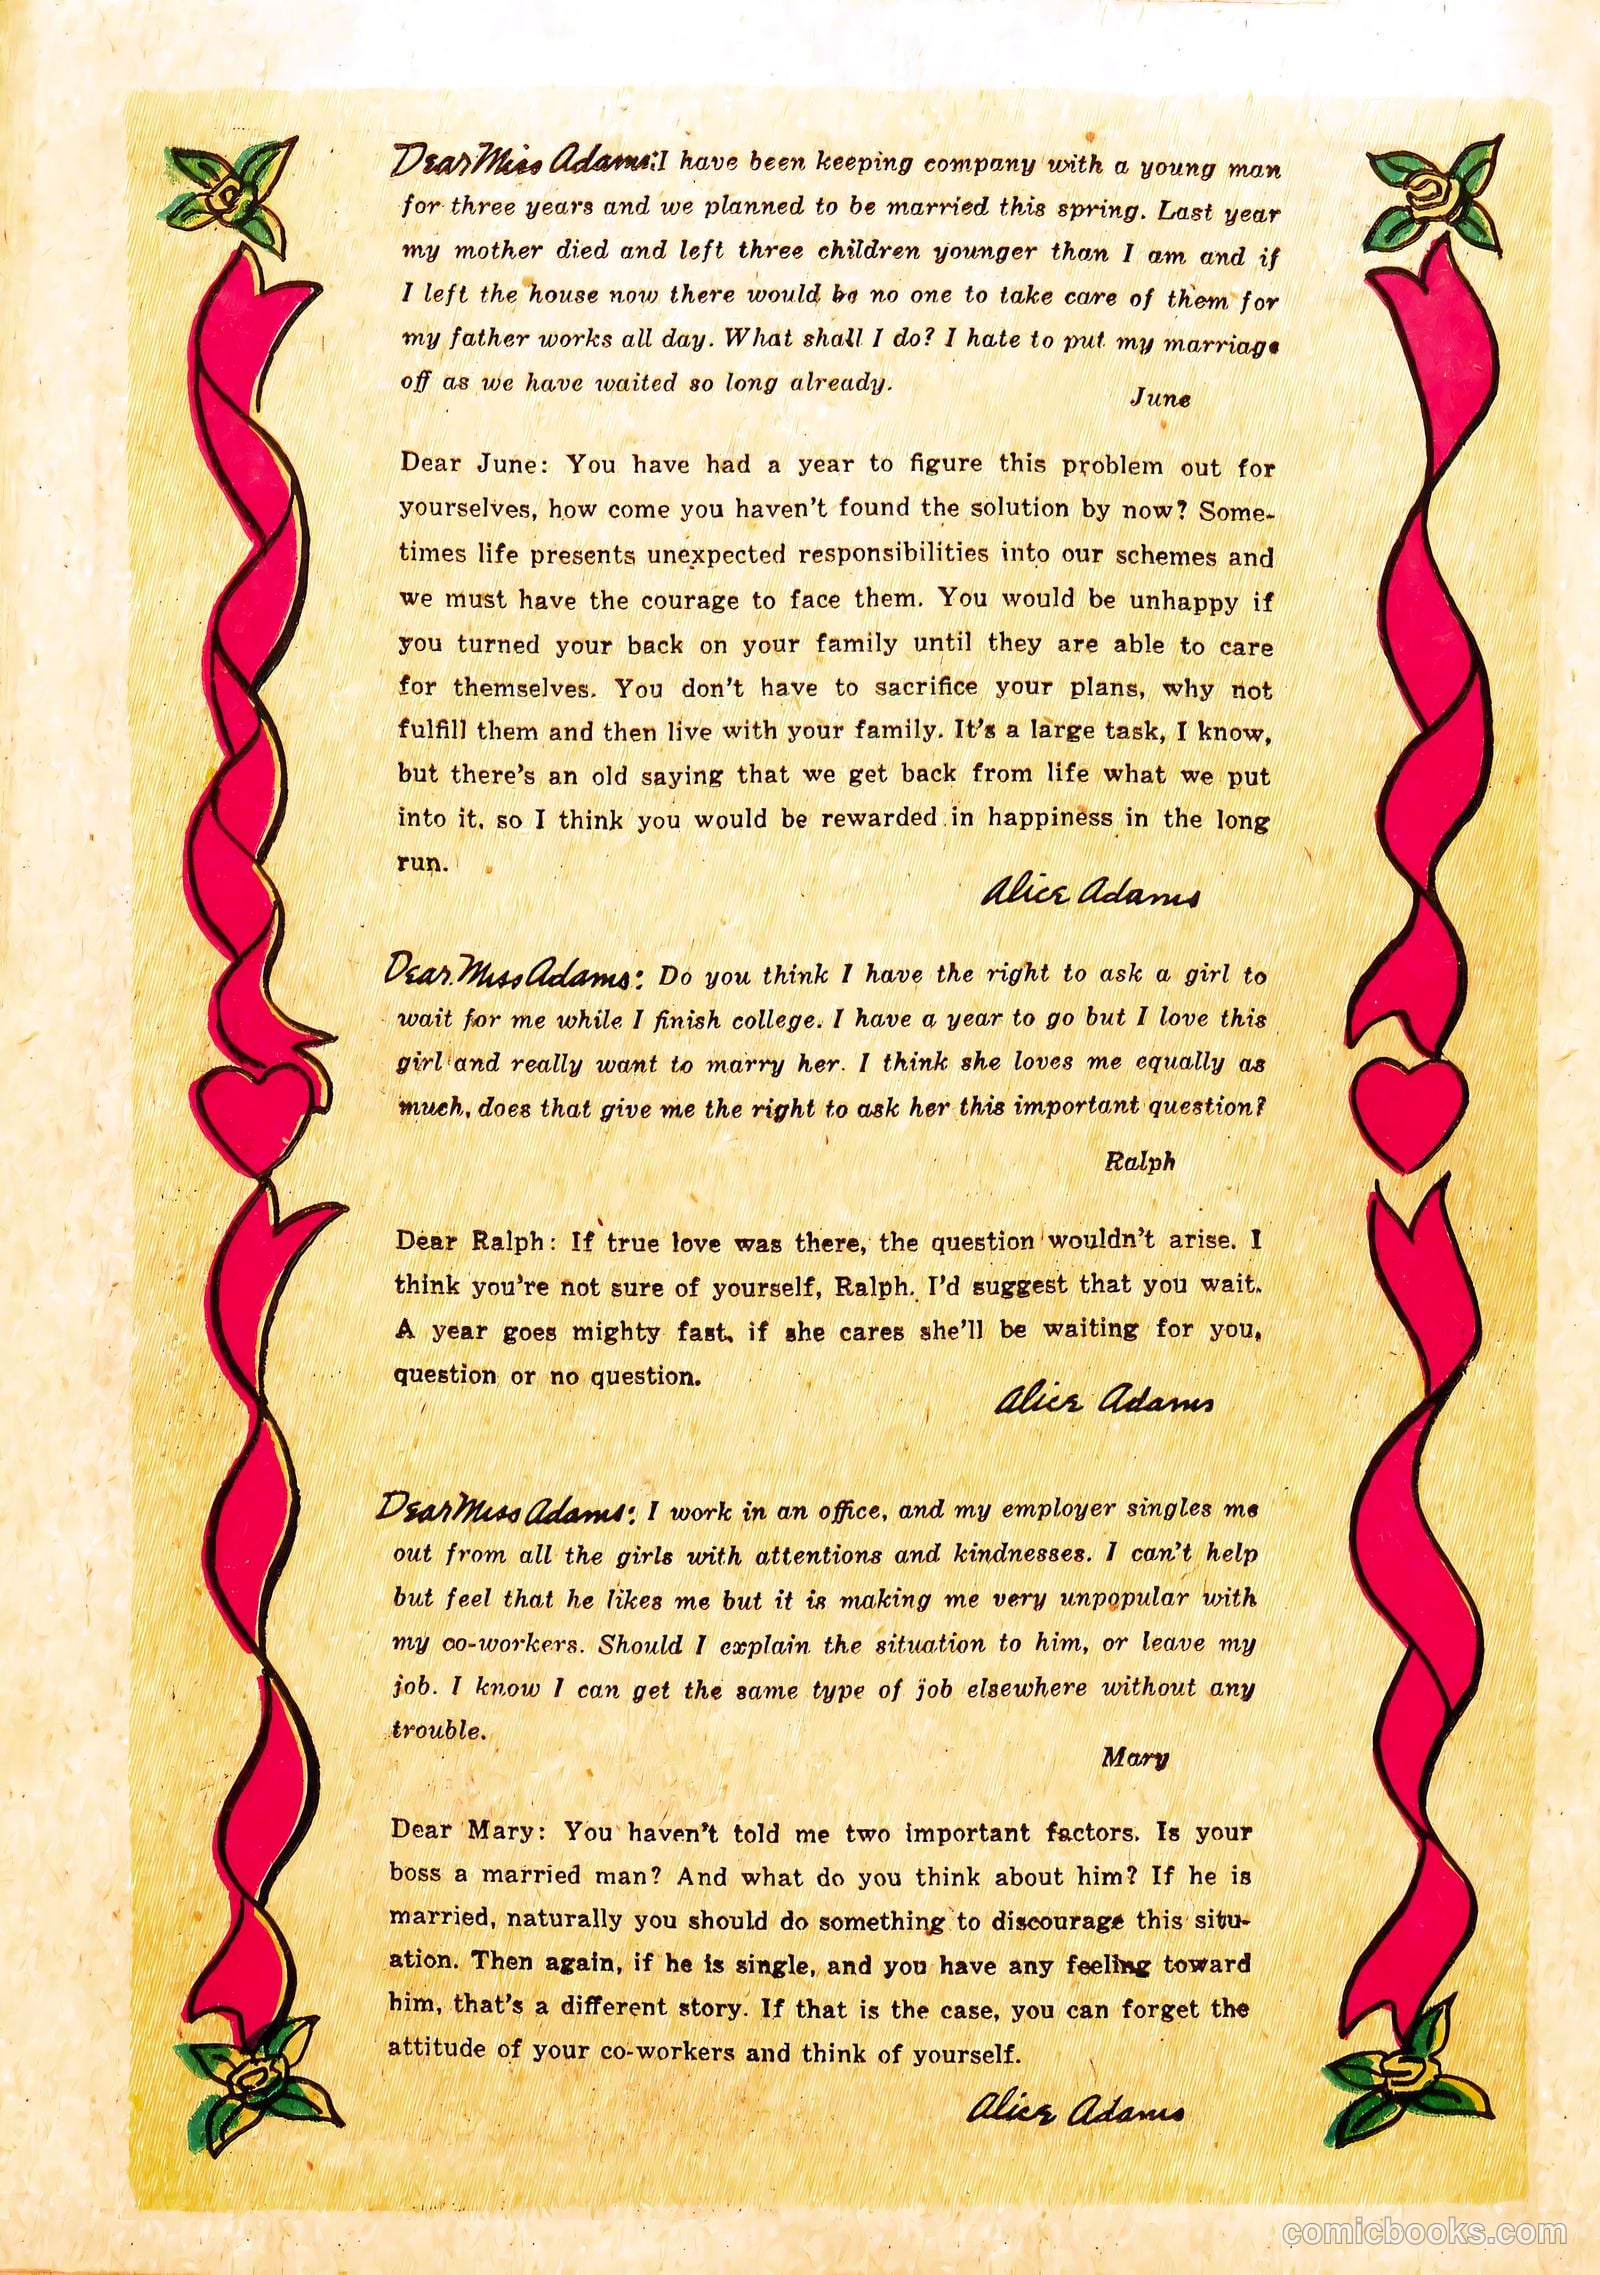 Dear Miss Adams: I have been keeping company with a young man
for three years and we planned to be married this spring. Last year
my mother died and left three children younger than I am and if
I left the house now there would be no one to take care of them for
my father works all day. What shall I do? I hate to put my marriage
off as we have waited so long already.
June
Dear June: You have had a year to figure this problem out for
yourselves, how come you haven't found the solution by now? Some-
times life presents unexpected responsibilities into our schemes and
we must have the courage to face them. You would be unhappy if
you turned your back on your family until they are able to care
for themselves. You don't have to sacrifice your plans, why not
fulfill them and then live with your family. It's a large task, I know,
but there's an old saying that we get back from life what we put
into it, so I think you would be rewarded in happiness in the long
run.
Alice Adams
Dear Miss Adams: Do you think I have the right to ask a girl to
wait for me while I finish college. I have a year to go but I love this
girl and really want to marry her. I think she loves me equally as
much, does that give me the right to ask her this important question?
Ralph
Dear Ralph: If true love was there, the question wouldn't arise. I
think you're not sure of yourself, Ralph. I'd suggest that you wait.
A year goes mighty fast, if she cares she'll be waiting for you,
question or no question.
Alice Adams
Dear Miss Adams: I work in an office, and my employer singles me
out from all the girls with attentions and kindnesses. I can't help
but feel that he likes me but it is making me very unpopular with
my co-workers. Should I explain the situation to him, or leave my
job. I know I can get the same type of job elsewhere without any
trouble.
Mary
Dear Mary: You haven't told me two important factors. Is your
boss a married man? And what do you think about him? If he is
married, naturally you should do something to discourage this situ-
ation. Then again, if he is single, and you have any feeling toward
him, that's a different story. If that is the case, you can forget the
attitude of your co-workers and think of yourself.
Alice Adams
comicbooks.com